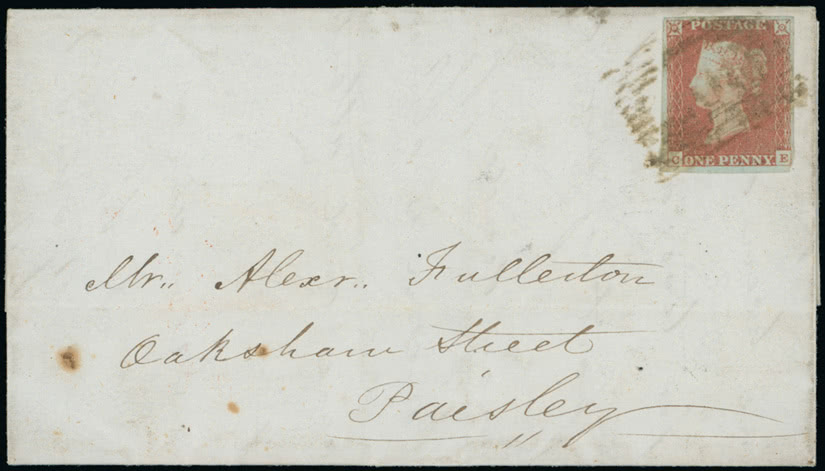 POSTAGE
C ONE PENNY E
Mr,, Alexr,, Fullerton
Oaksham Street
Paisley